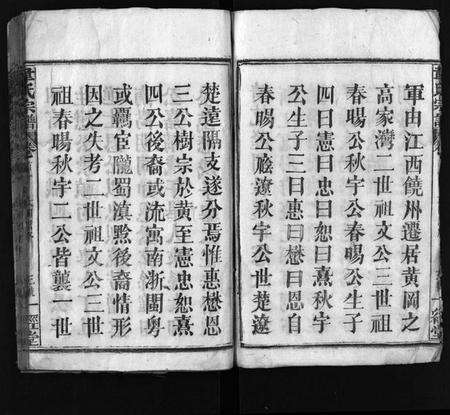 軍由江西饒州遷居黃岡之
高家灣二世祖文公三世祖
春暘公秋宇公春暘公生子
四曰憲曰忠曰恕曰熹秋宇
公生子三曰惠曰懋曰恩自
春暘公秋宇公世楚遼
楚遠隔支遂分焉惟惠懋恩
三公樹宗於黃至憲忠恕熹
四公後裔或流寓南浙閩粵
或覊宦隴蜀滇黔後裔情形
因之失考二世祖文公三世
祖春暘秋宇二公皆襲一世